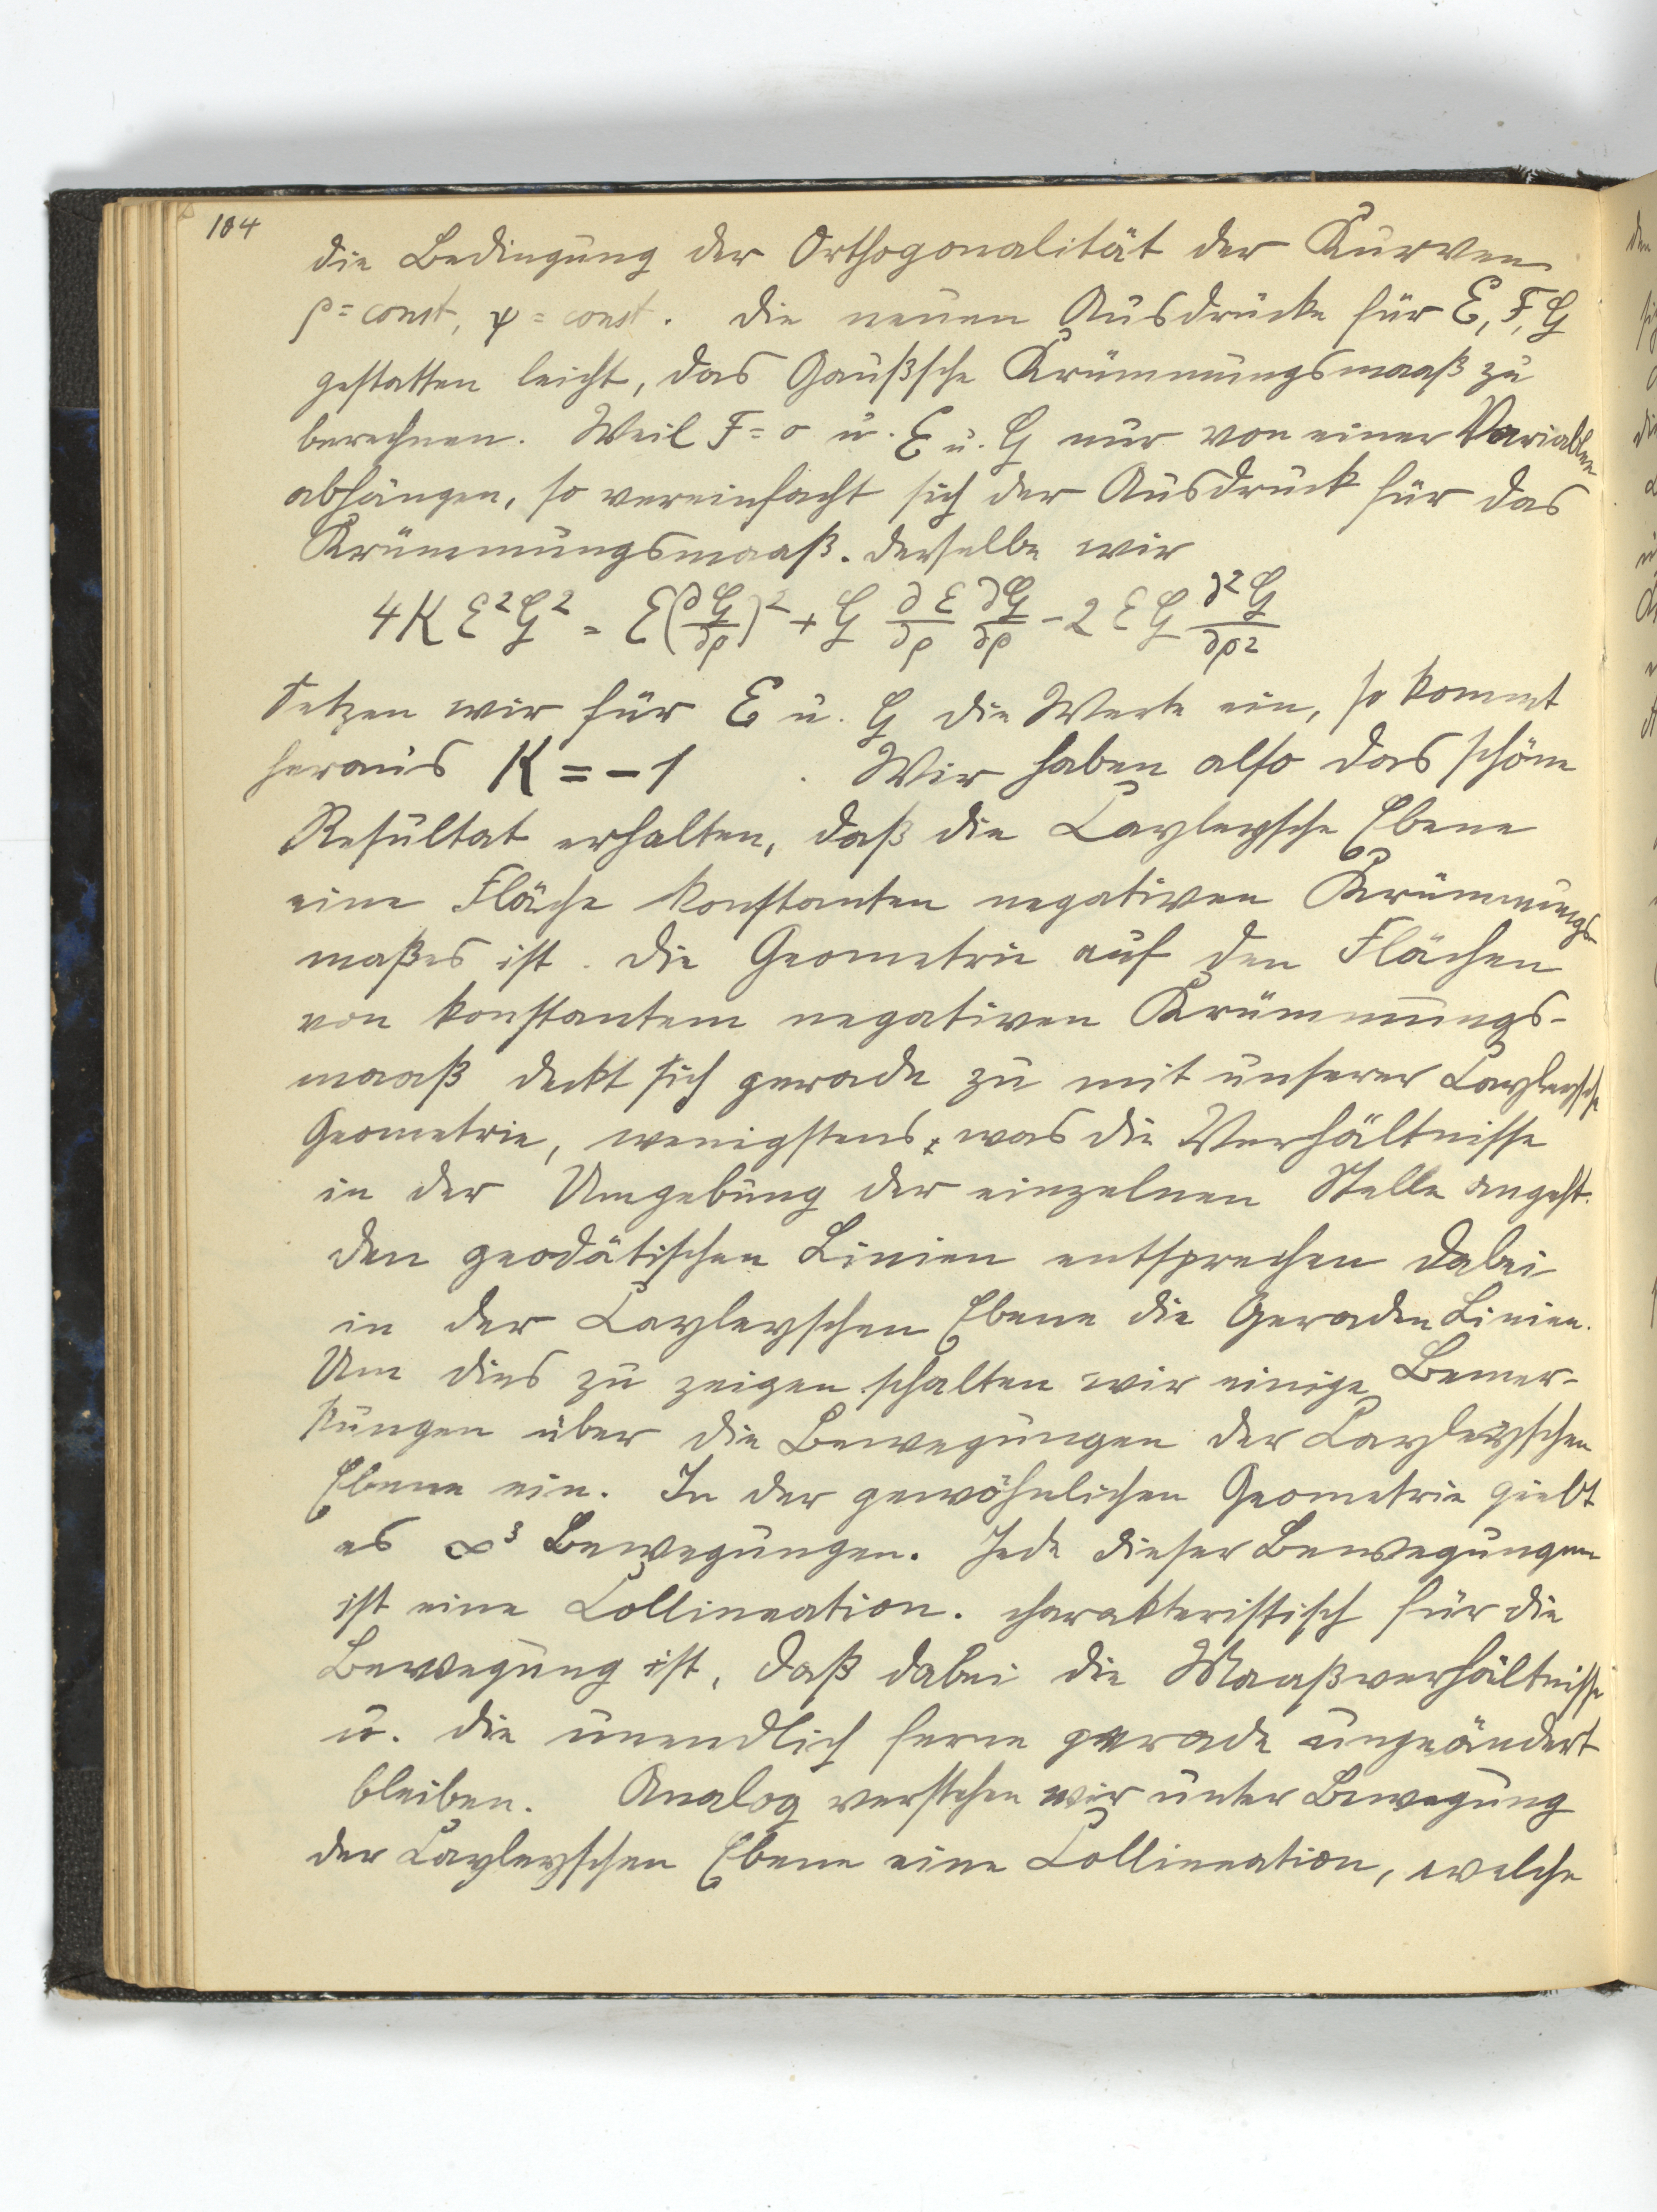 104
die Bedingung der Orthogonalität der Kurven
ρ = const, ψ = const. Die neuen Ausdrücke für E, F, G
gestatten leicht, das Gaußsche Krümmungsmaaß zu
berechnen. Weil F = 0 u. E u. G nur von einer Variablen
abhängen, so vereinfacht sich der Ausdruck für das
Krümmungsmaaß. Derselbe wir
4KE²G² = E(∂G/∂ρ)² + G ∂E/∂ρ ∂G/∂ρ - 2EG ∂²G/∂ρ²
Setzen wir für E u. G die Werte ein, so kommt
heraus K = -1 . Wir haben also das schöne
Resultat erhalten, daß die Cayleysche Ebene
eine Fläche konstanten negativen Krümmungs-
maßes ist. Die Geometrie auf den Flächen
von konstantem negativen Krümmungs-
maaß deckt sich gerade zu mit unserer Cayleysche
Geometrie, wenigstens was die Verhältnisse
in der Umgebung der einzelnen Stelle angeht.
Den geodätischen Linien entsprechen dabei
in der Cayleyschen Ebene die Geraden Linien.
Um dies zu zeigen schalten wir einige Bemer-
kungen über die Bewegungen der Cayleyschen
Ebene ein. In der gewöhnlichen Geometrie giebt
es ∞³ Bewegungen. Jede dieser Bewegungen
ist eine Collineation. Charakteristisch für die
Bewegung ist, daß dabei die Maaßverhältnisse
u. die unendlich ferne gerade ungeändert
bleiben. Analog verstehen wir unter Bewegung
der Cayleyschen Ebene eine Collineation, welche